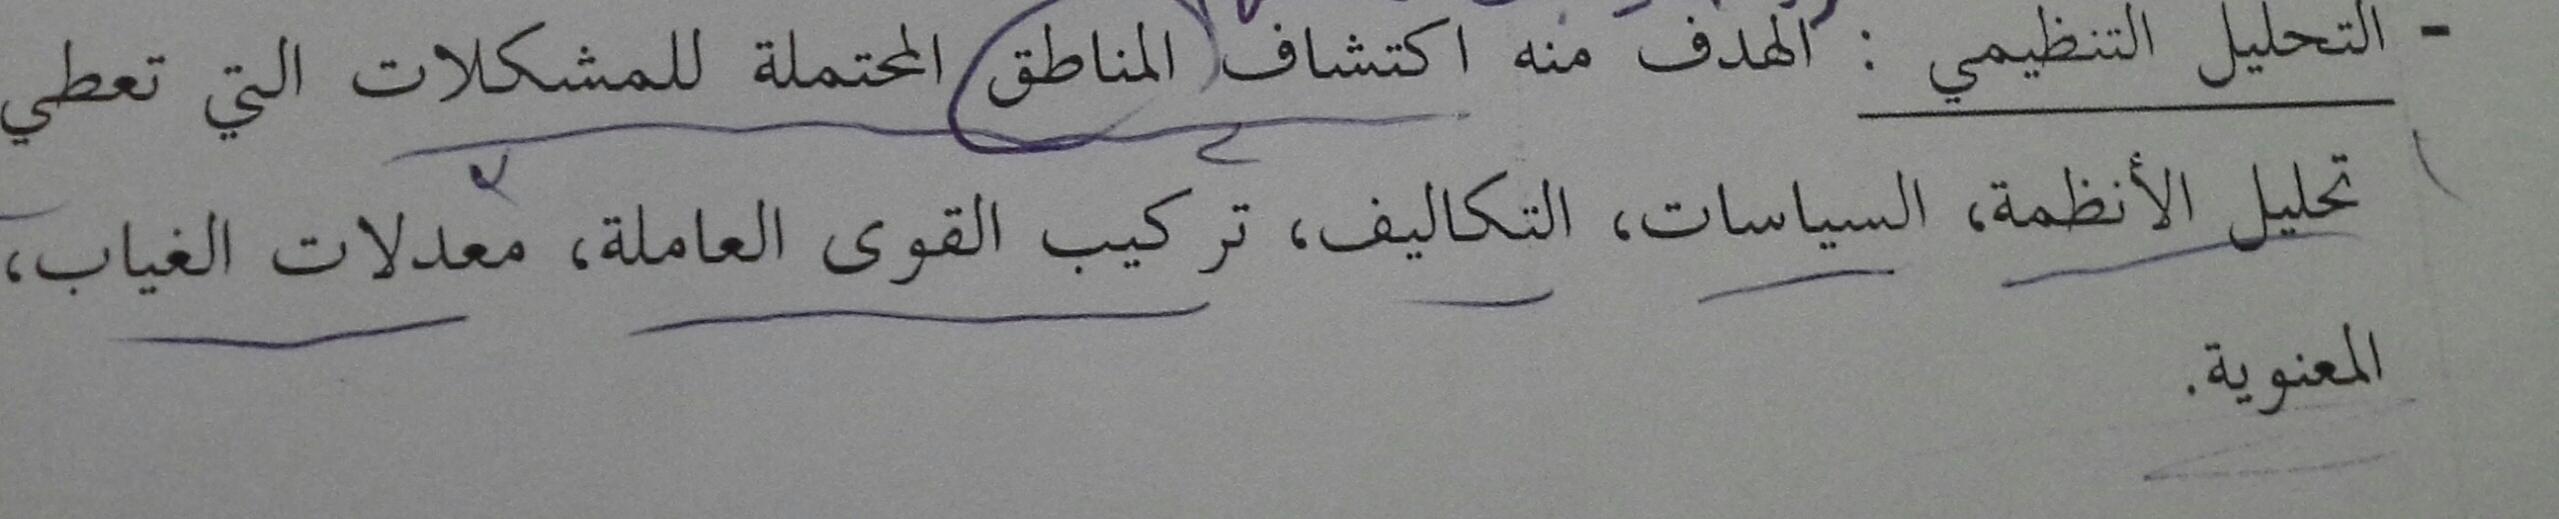 - التحليل التنظيمي : الهدف منه اكتشاف المناطق المحتملة للمشكلات التي تعطي
تحليل الأنظمة، السياسات، التكاليف، تركيب القوى العاملة، معدلات الغياب،
المعنوية.